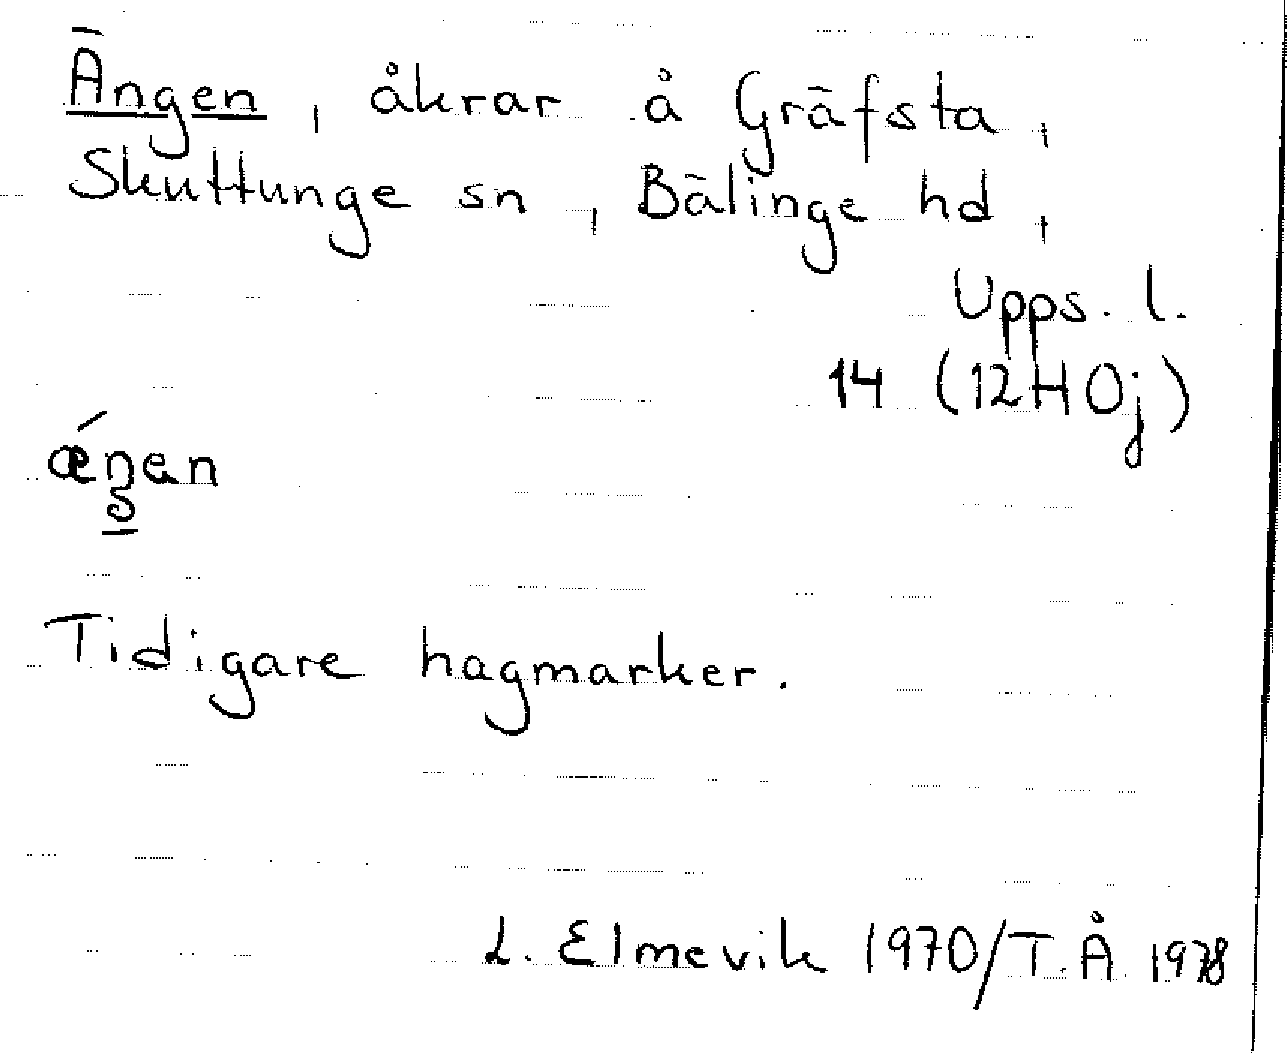 Ängen, åkrar å Gräfsta,
Skuttunge sn, Bälinge hd,
Upps. l.
14 (12H0j)
Tidigare hagmarker.
L. Elmevik 1970/T.Å 1978